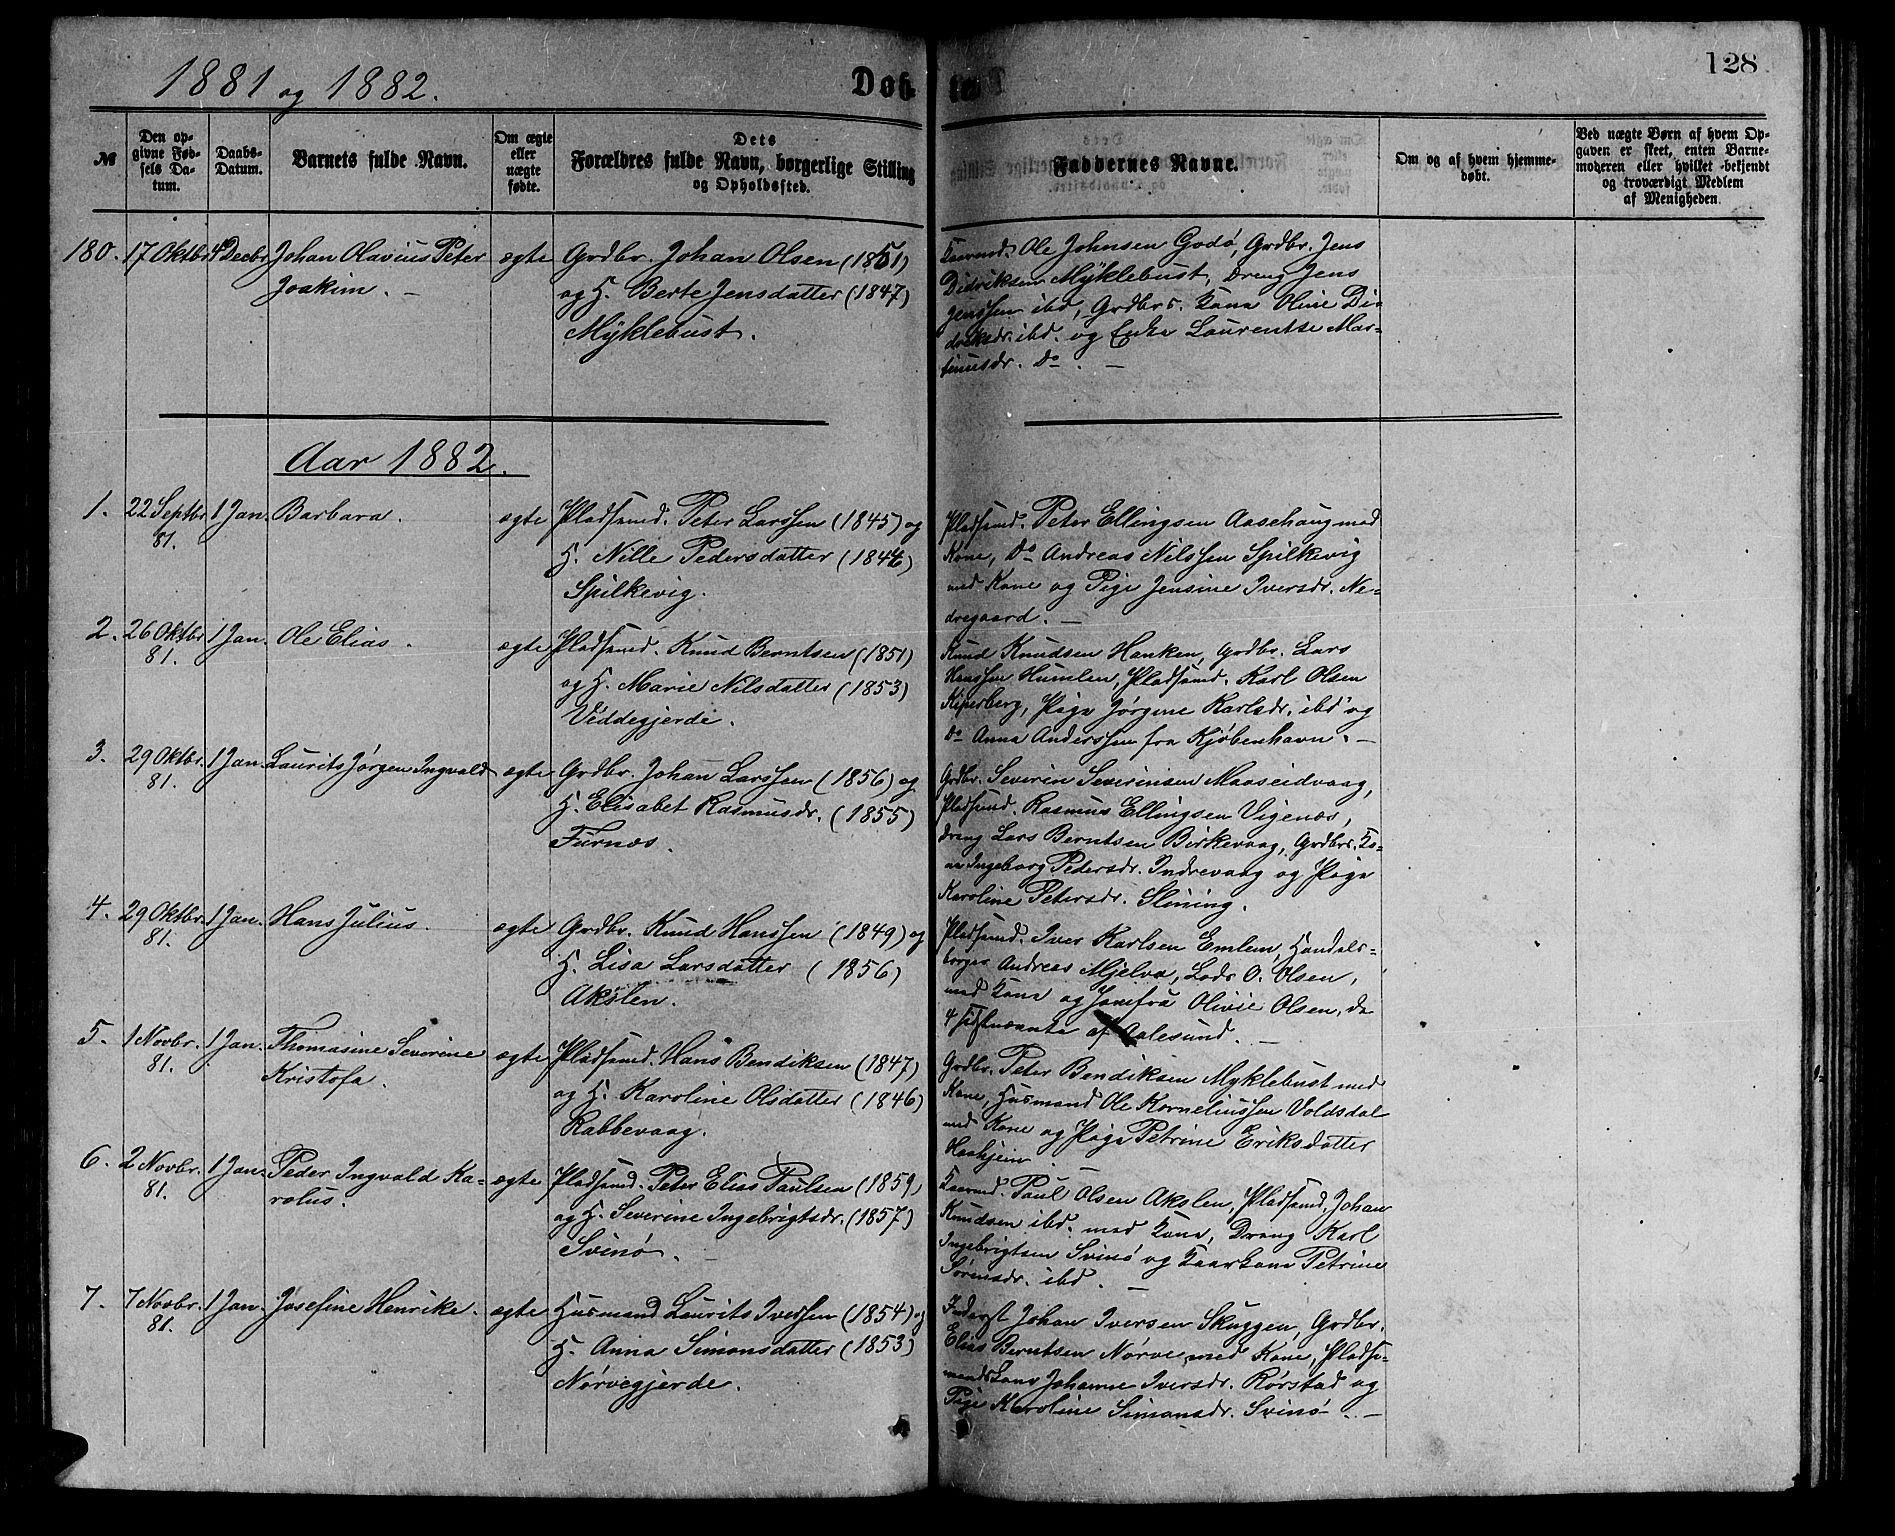 1881 og 1882.
Døb-
128
№
Den op-
givne Fød-
sels Da-
tum.
Daabs-
Datum.
Barnets fulde Navn.
Om ægte
eller
uægte
fødte.
Dets
Forældres fulde Navn, borgerlige Stilling
og Opholdssted.
Faddernes Navne.
Om og af hvem hjemme-
døbt.
Ved uægte Børn af hvem Op-
gaven er skeet, enten Barne-
moderen eller hvilket bekjendt
og troværdigt Medlem
af Menigheden.
180. 17 Oktbr 4 Decbr Johan Olavius Peter
Joakim. –
ægte
Grdbr. Johan Olsen (1851)
og H. Berte Jensdatter (1847)
Myklebust.
Ole Johnsen Godø, Grdbr. Jens
Didriksen Myklebust, Dreng Jens
Jenssen ibd, Grdbrs. Kone Oline Di-
driksdr. ibd. og Enke Laurentse Mar-
tinusdr. Do. –
Aar 1882.
1. 22 Septbr 81. 1 Jan. Barbara.
ægte
Pladsmd. Peter Larssen (1845) og
H. Nille Pedersdatter (1844)
Spilkevig.
Pladsmd. Peter Ellingsen Aasehaug med
Kone, Do Andreas Nilssen Spilkevig
med Kone og Pige Jensine Iversdr. Ne-
dregaard. –
2. 26 Oktbr 81. 1 Jan. Ole Elias.
ægte
Pladsmd. Knud Berntsen (1851)
og H. Marie Nilsdatter (1853)
Veddegjerde.
Knud Knudsen Hanken, Grdbr. Lars
Hanssen Humlen, Pladsmd. Karl Olsen
Kiperberg, Pige Jørgine Karlsdr. ibd og
Do Anna Anderssen fra Kjøbenhavn. –
3. 29 Oktbr. 81. 1 Jan. Laurits Jørgen Ingvald
ægte
Grdbr. Johan Larssen (1856) og
H. Elisabet Rasmusdr. (1855)
Furnæs.
Grdbr. Severin Severinsen Maaseidvaag,
Pladsmd. Rasmus Ellingsen Vigenæs,
Dreng Lars Berntsen Birkevaag, Grdbrs. Ko-
ne Ingeborg Pedersdr. Indrevaag og Pige
Karoline Petersdr. Slining.
4. 29 Oktbr. 81. 1 Jan. Hans Julius.
ægte
Grdbr. Knud Hanssen (1849) og
H. Lisa Larsdatter (1856)
Akslen.
Pladsmd. Iver Karlsen Emlem, Handels-
borger Andreas Mjelva, Lods O. Olsen,
med Kone og Jomfru Olivie Olsen, de
4 sidstnævnte af Aalesund. –
5. 1 Novbr. 81. 1 Jan. Thomasine Severine
Kristofa.
ægte
Pladsmd. Hans Bendiksen (1847)
og H. Karoline Olsdatter (1846)
Rabbevaag.
Grdbr. Peter Bendiksen Myklebust med
Kone, Husmand Ole Korneliussen Voldsdal
med Kone og Pige Petrine Eriksdatter
6. 2 Novbr. 81. 1 Jan. Peder Ingvald Ka-
rolus.
ægte
Pladsmd. Peter Elias Paulsen (1859,
og H. Severine Ingebrigtsdr. (1857)
Svinø. –
Kaarmd. Paul Olsen Akslen, Pladsmd. Johan
Knudsen ibd. med Kone, Dreng Karl
Ingebrigtsen Svinø og Kaarkone Petrine
Sørensdr. ibd. –
7. 7 Novbr. 81. 1 Jan. Josefine Henrike.
ægte
Husmand Laurits Iversen (1854) og
H. Anna Simonsdatter (1853)
Nørvegjerde.
Inderst Johan Iversen Skuggen, Grdbr.
Elias Berntsen Nørve med Kone, Plads-
mands Kone Johanne Iversdr. Rørstad og
Pige Karoline Simonsdr. Svinø. –